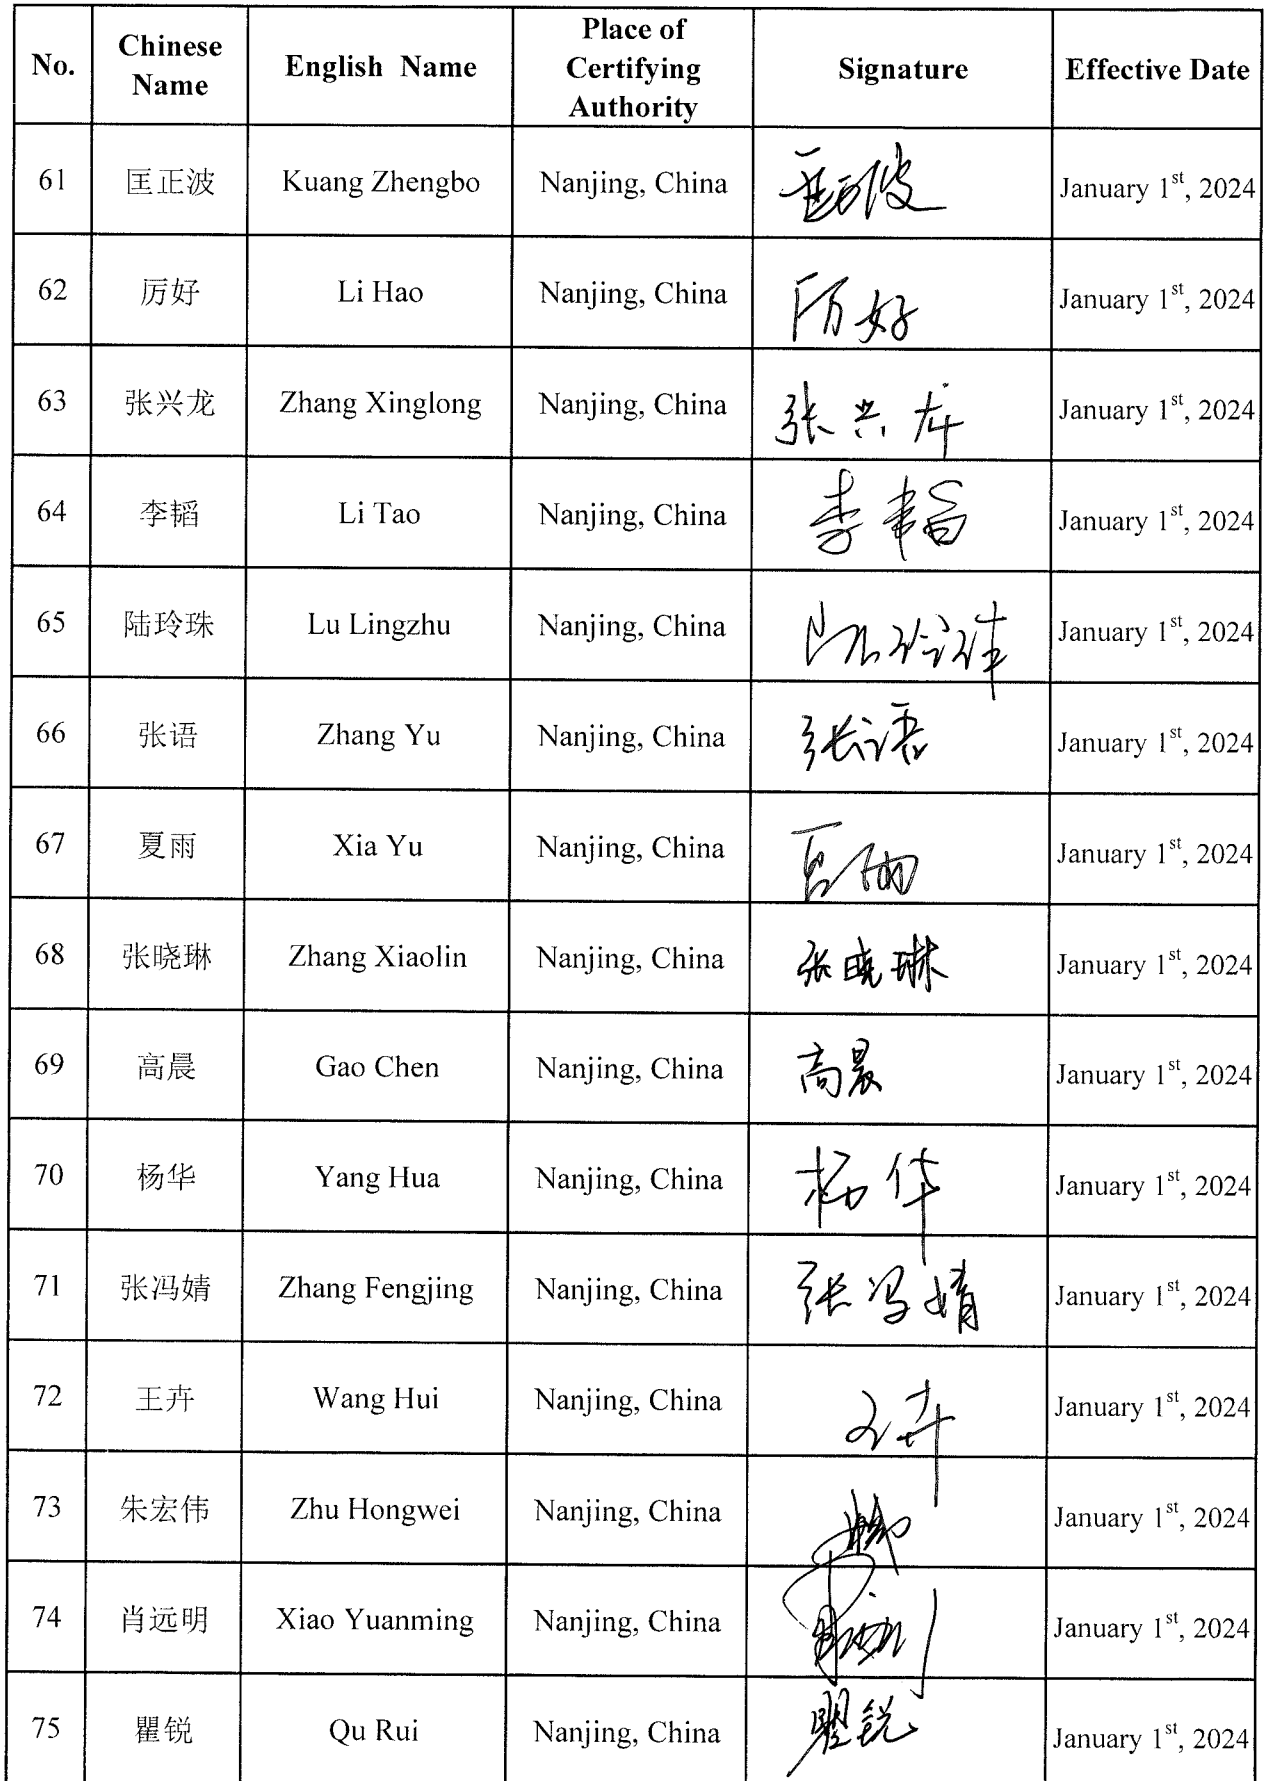 No. Chinese Name English Name Place of Certifying Authority Signature Effective Date
61 匡正波 Kuang Zhengbo Nanjing, China 匡正波 January 1st, 2024
62 厉好 Li Hao Nanjing, China 厉好 January 1st, 2024
63 张兴龙 Zhang Xinglong Nanjing, China 张兴龙 January 1st, 2024
64 李韬 Li Tao Nanjing, China 李韬 January 1st, 2024
65 陆玲珠 Lu Lingzhu Nanjing, China 陆玲珠 January 1st, 2024
66 张语 Zhang Yu Nanjing, China 张语 January 1st, 2024
67 夏雨 Xia Yu Nanjing, China 夏雨 January 1st, 2024
68 张晓琳 Zhang Xiaolin Nanjing, China 张晓琳 January 1st, 2024
69 高晨 Gao Chen Nanjing, China 高晨 January 1st, 2024
70 杨华 Yang Hua Nanjing, China 杨华 January 1st, 2024
71 张冯婧 Zhang Fengjing Nanjing, China 张冯婧 January 1st, 2024
72 王卉 Wang Hui Nanjing, China 王卉 January 1st, 2024
73 朱宏伟 Zhu Hongwei Nanjing, China January 1st, 2024
74 肖远明 Xiao Yuanming Nanjing, China January 1st, 2024
75 瞿锐 Qu Rui Nanjing, China 瞿锐 January 1st, 2024